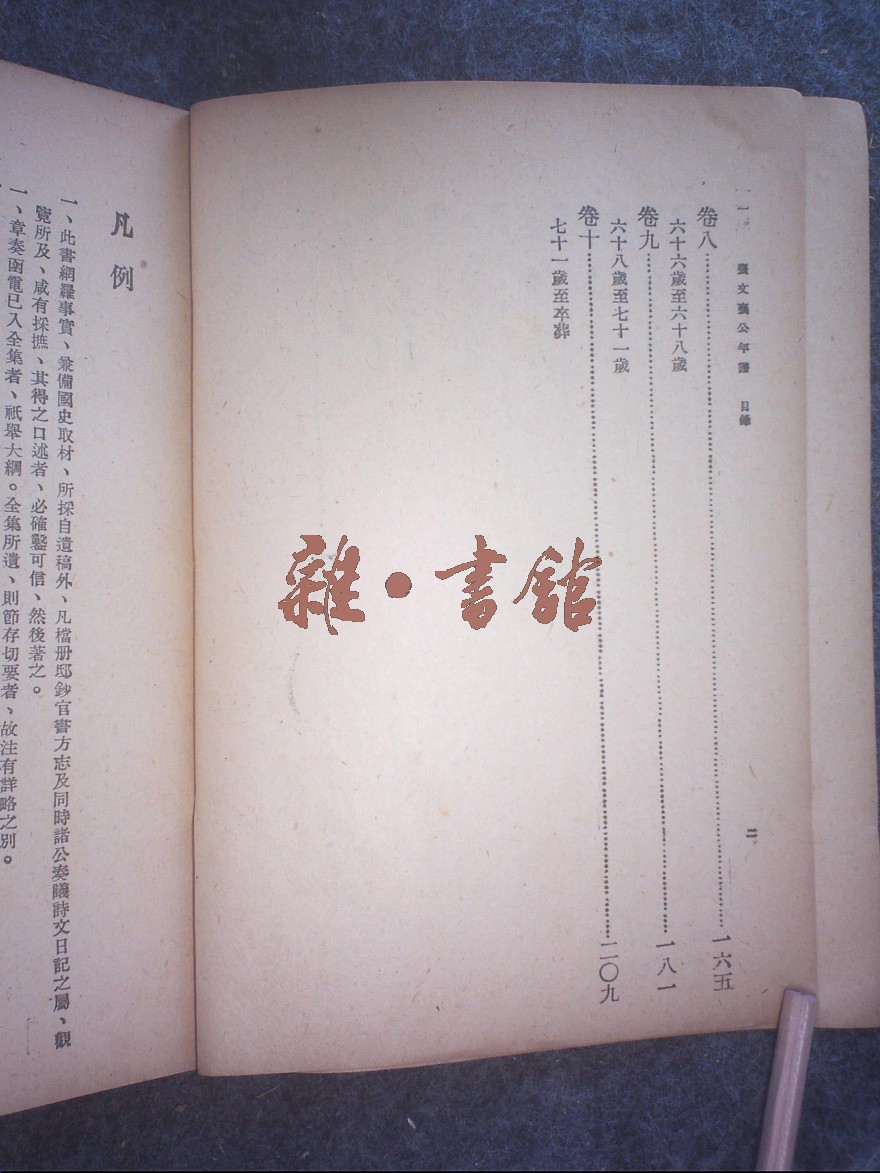 張文襄公年譜 目錄
二
卷八……一六五
六十六歲至六十八歲
卷九……一八一
六十八歲至七十一歲
卷十……二〇九
七十一歲至卒葬
凡例
一、此書網羅事實、兼備國史取材、所採自遺稿外、凡檔册邸鈔官書方志及同時諸公奏議詩文日記之屬、觀
覽所及、咸有採摭、其得之口述者、必確鑿可信、然後著之。
一、章奏函電已入全集者、祇舉大綱。全集所遺、則節存切要者、故注有詳略之別。
雜·書館